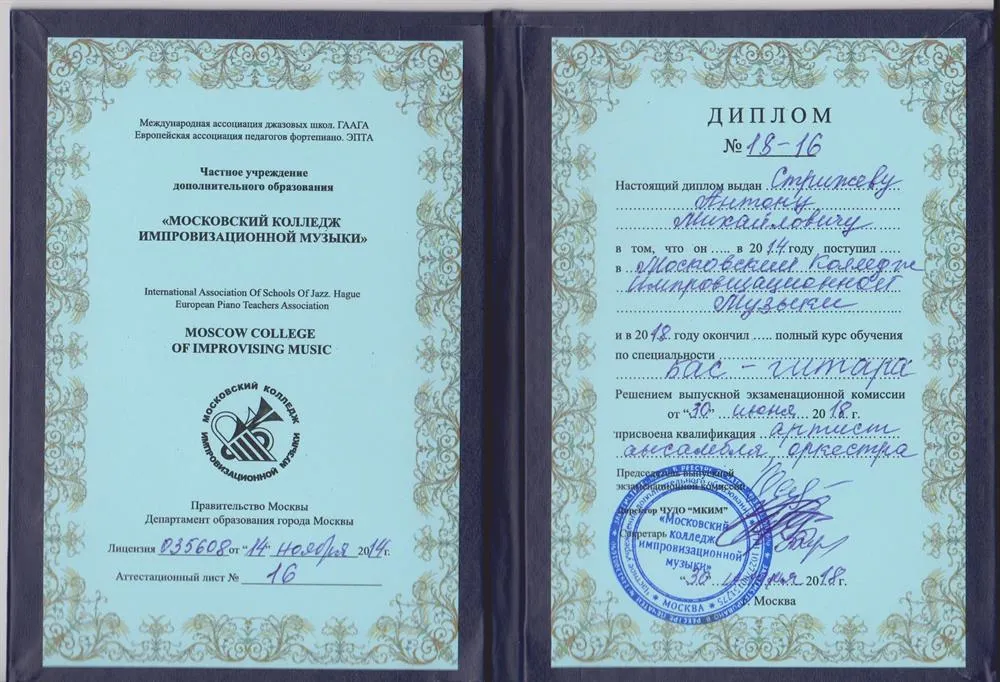 Международная ассоциация джазовых школ. ГААГА
Европейская ассоциация педагогов фортепиано. ЭПТА
Частное учреждение
дополнительного образования
«МОСКОВСКИЙ КОЛЛЕДЖ
ИМПРОВИЗАЦИОННОЙ МУЗЫКИ»
International Association Of Schools Of Jazz. Hague
European Piano Teachers Association
MOSCOW COLLEGE
OF IMPROVISING MUSIC
МОСКОВСКИЙ КОЛЛЕДЖ
ИМПРОВИЗАЦИОННОЙ МУЗЫКИ
Правительство Москвы
Департамент образования города Москвы
Лицензия 035608 от "14" ноября 2014г.
Аттестационный лист № 16
ДИПЛОМ
№ 18-16
Настоящий диплом выдан Стрижеву
Антону
Михайловичу
в том, что он ..... в 2014 году поступил .....
в Московский Колледж
Импровизационной
Музыки
и в 2018 году окончил ..... полный курс обучения
по специальности
бас-гитара
Решением выпускной экзаменационной комиссии
от "30" июня 2018 г.
присвоена квалификация артист
ансамбля, оркестра
Председатель выпускной
экзаменационной комиссии
Директор ЧУДО "МКИМ"
Секретарь
«Московский
колледж
импровизационной
музыки»
* МОСКВА *
"30" июня 2018 г.
г. Москва